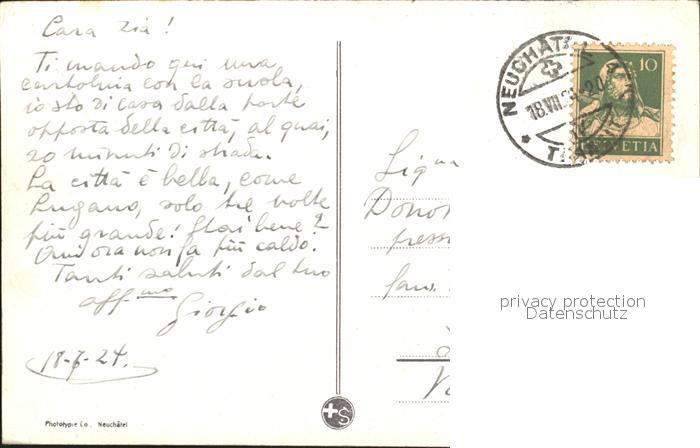 Cara zia!
Ti mando qui una
cartolina con la suola,
io sto di casa dalla parte
opposta della città, al quai,
20 minuti di strada.
La città è bella, come
Lugano, solo tre volte
più grande! Stai bene?
Qui ora non fa più caldo.
Tanti saluti dal tuo
aff.mo
Giorgio
18-7-24.
Phototypie Co., Neuchâtel
+S
NEUCHÂTEL
18.VII.
10
HELVETIA
Donot
press
privacy protection
Datenschutz